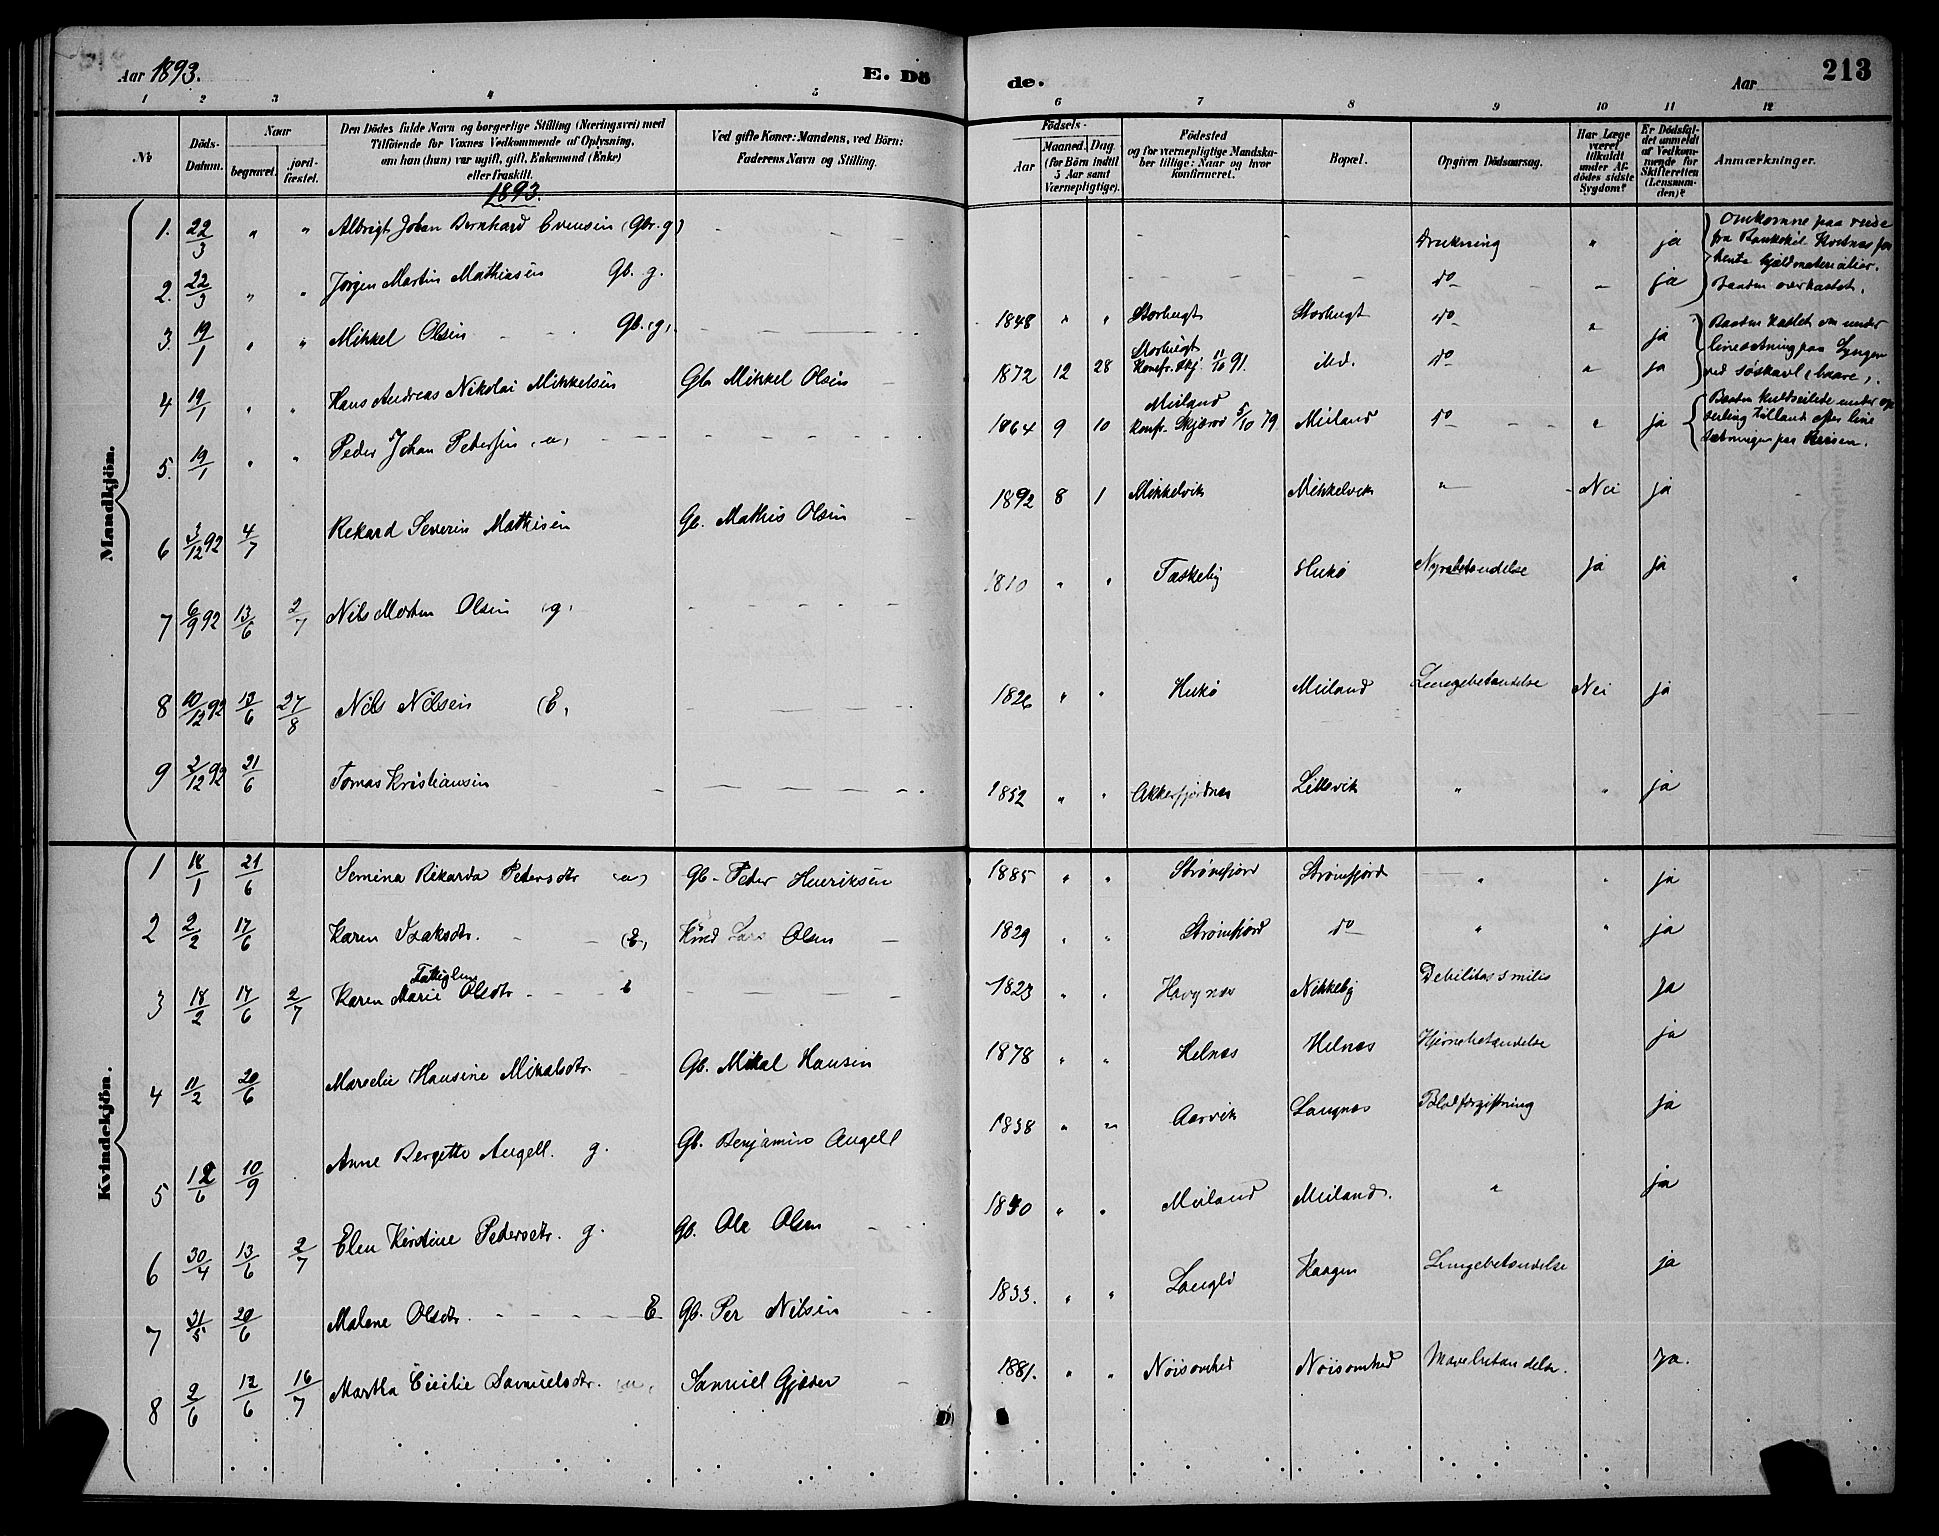 Aar 1893. E. Dö de. Aar 213
1 2 3 4 5 6 7 8 9 10 11 12
No Döds-Datum. Naar begravet. jordfæstet. Den Dödes fulde Navn og borgerlige Stilling (Næringsvei) med Tilföiende for Voxnes Vedkommende af Oplysning, om han (hun) var ugift, gift, Enkemand (Enke) eller fraskilt. Ved gifte Koner: Mandens, ved Börn: Faderens Navn og Stilling. Födsels- Aar Maaned. Dag. (for Börn indtil 5 Aar samt Værnepligtige). Födested og for værnepligtige Mandskaber tillige: Naar og hvor konfirmeret. Bopæl. Opgiven Dödsaarsag. Har Læge været tilkaldt under Afdödes sidste Sygdom? Er Dödsfaldet anmeldt af Vedkommende for Skifteretten (Lensmanden)? Anmærkninger.
1893.
Mandkjön.
1. 22/3 " " Albrigt Johan Bernhard Evensen (Gbr. g) Drukning " ja Omkomne paa reise
2. 22/3 " " Jörgen Martin Mathiasen Gb. g. do ja Baaden overkastet.
3. 19/1 " " Mikkel Olsen Gb. (g) 1848 " " Storbugt Storbugt do " ja Baaden kastet om under
4 19/1 " " Hans Andreas Nikolai Mikkelsen Gb Mikkel Olsen 1872 12 28 Storbugt Konfr. Skj. 11/10 91. ibid. do " ja
5. 19/1 " " Peder Johan Petersen (u) 1864 9 10 Meiland Konfr. Skjærvö 5/10 79 Meiland do " ja
6 3/12 92 4/7 Rekard Severin Mathisen Gb. Mathis Olsen 1892 8 1 Mikkelvik Mikkelvik " Nei ja "
7 6/9 92 13/6 2/7 Nils Morten Olsen (g) 1810 " " Taskeby Hukö Nyrebetændelse ja ja "
8 10/12 92 13/6 27/8 Nils Nilsen (E) 1826 " " Hukö Meiland Lungebetændelse Nei ja
9 2/12 92 21/6 Tomas Kristiansen 1852 " " Akkarfjordnes Lillevik " " ja
Kvindekjön.
1 18/1 21/6 Semina Rikarda Petersdtr (u) Gb. Peder Henriksen 1885 " " Strömfjord Strömfjord " " ja
2 2/2 17/6 Karen Isaksdtr. (E) Olsen 1829 " " Strömfjord do " " ja
3 18/2 17/6 2/7 Karen Marie Olsdtr E 1823 " " Nikkeby Debilitas senilis ja
4 11/2 20/6 Marselie Hansine Mikalsdtr. Gb. Mikal Hansen 1878 " " Helnæs Helnæs Hjernebetændelse ja
5 12/6 10/9 Anne Bergitte Angell. g. Gb. Benjamin Angell 1838 " " Aarvik Langnæs Blodforgiftning ja
6 30/4 13/6 2/7 Elen Kirstine Pedersdtr. g. Gb. Ole Olsen 1830 " " Meiland Meiland. " ja
7 31/5 20/6 Malene Olsdtr. E Gb. Per Nilsen 1833. " " Kaagen Lungebetændelse ja
8 2/6 12/6 16/7 Martha Cecilie Samuelsdtr. (u) Samuel Gjæver 1881. " " Nöisomhed Nöisomhed Mavebetændelse. ja.